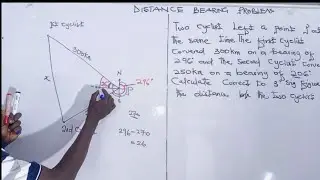 DISTANCE BEARING PROBLEM
1st cyclist
300km
N
296°
x
2nd C
296-270
=26
Two cyclist Left a point
the same time. The first cyclist
Covered 300km on a bearing of
296° and the Second Cyclist
250km on a bearing of 206°
Calculate Correct to 3 Sig figure
the distance b/w the two cyclist